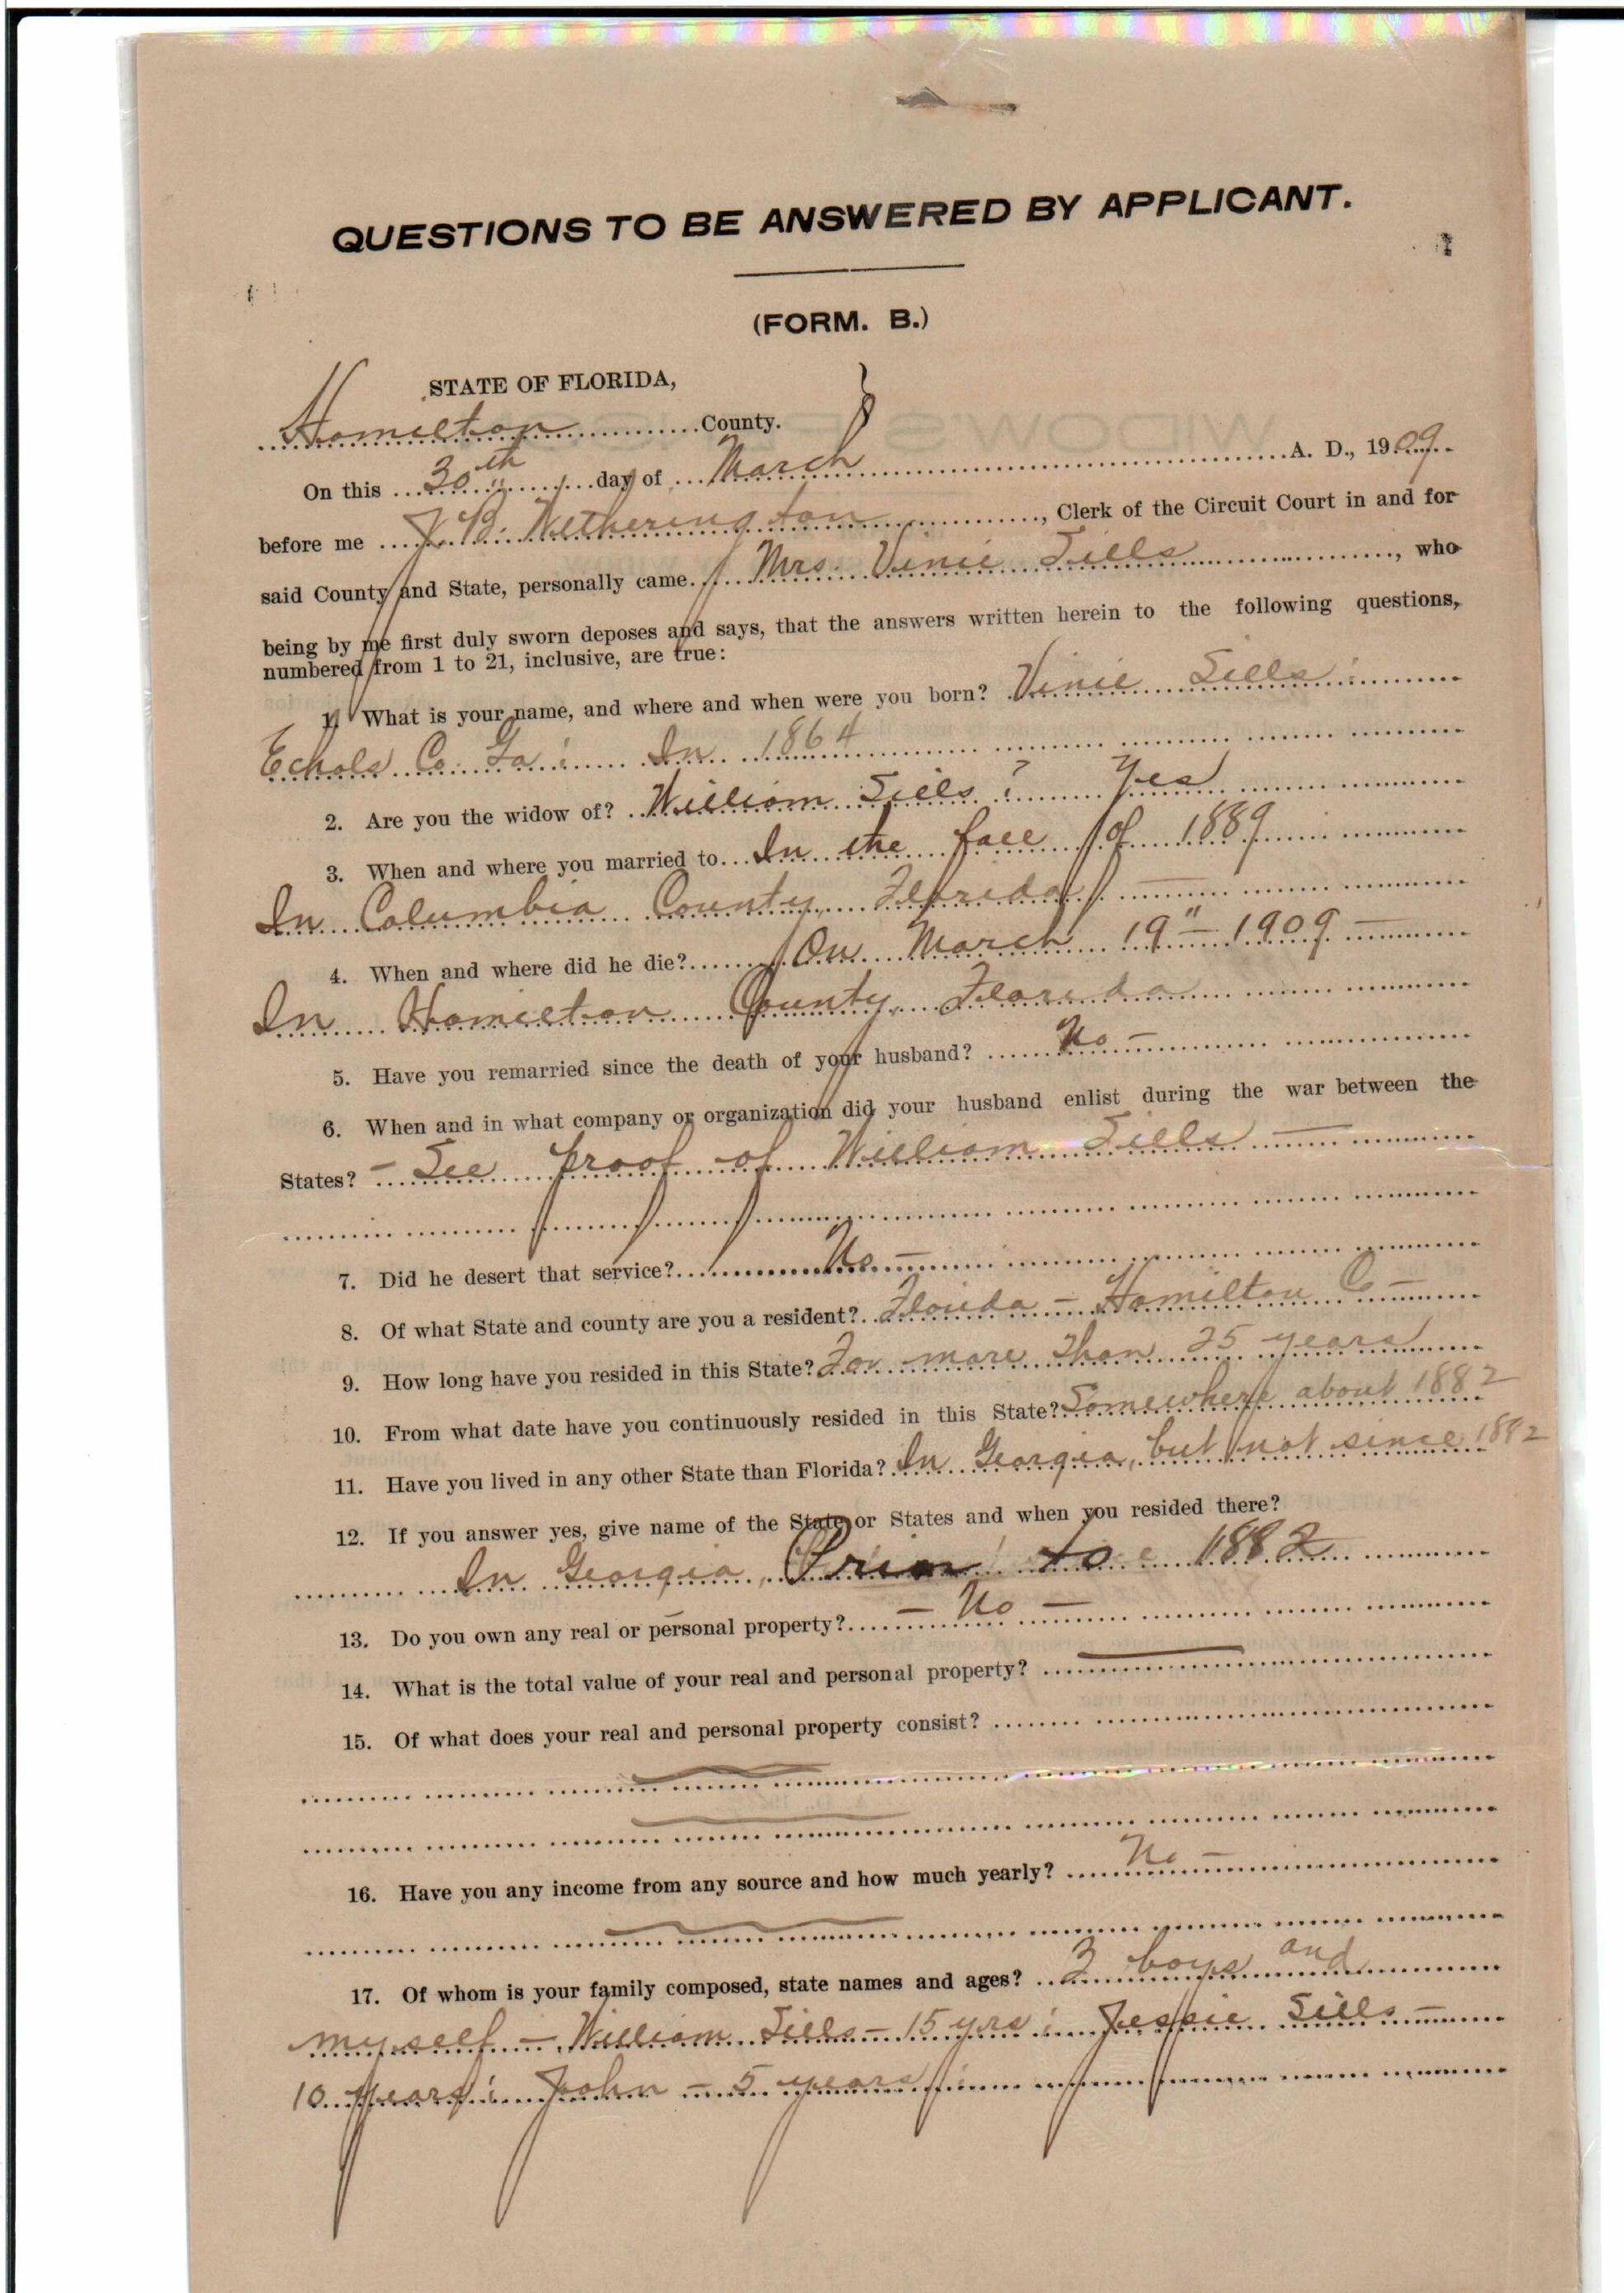 QUESTIONS TO BE ANSWERED BY APPLICANT.
(FORM. B.)
STATE OF FLORIDA,
Hamilton County.
On this 30th day of March A. D., 1909
before me J. B. Wetherington, Clerk of the Circuit Court in and for
said County and State, personally came Mrs. Vinie Sills, who
being by me first duly sworn deposes and says, that the answers written herein to the following questions,
numbered from 1 to 21, inclusive, are true:
1. What is your name, and where and when were you born? Vinie Sills:
Echols Co. Ga: In 1864
2. Are you the widow of? William Sills? Yes
3. When and where you married to In the fall of 1889
In Columbia County, Florida
4. When and where did he die? On March 19" 1909
In Hamilton County, Florida
5. Have you remarried since the death of your husband? No
6. When and in what company or organization did your husband enlist during the war between the
States? See proof of William Sills
7. Did he desert that service? No
8. Of what State and county are you a resident? Florida - Hamilton C
9. How long have you resided in this State? For more than 25 years
10. From what date have you continuously resided in this State? Somewhere about 1882
11. Have you lived in any other State than Florida? In Georgia, but not since 1882
12. If you answer yes, give name of the State or States and when you resided there?
In Georgia, Prior to 1882
13. Do you own any real or personal property? - No -
14. What is the total value of your real and personal property?
15. Of what does your real and personal property consist?
16. Have you any income from any source and how much yearly? No -
17. Of whom is your family composed, state names and ages? 3 boys and
myself - William Sills - 15 yrs: Jessie Sills -
10 years: John - 5 years: